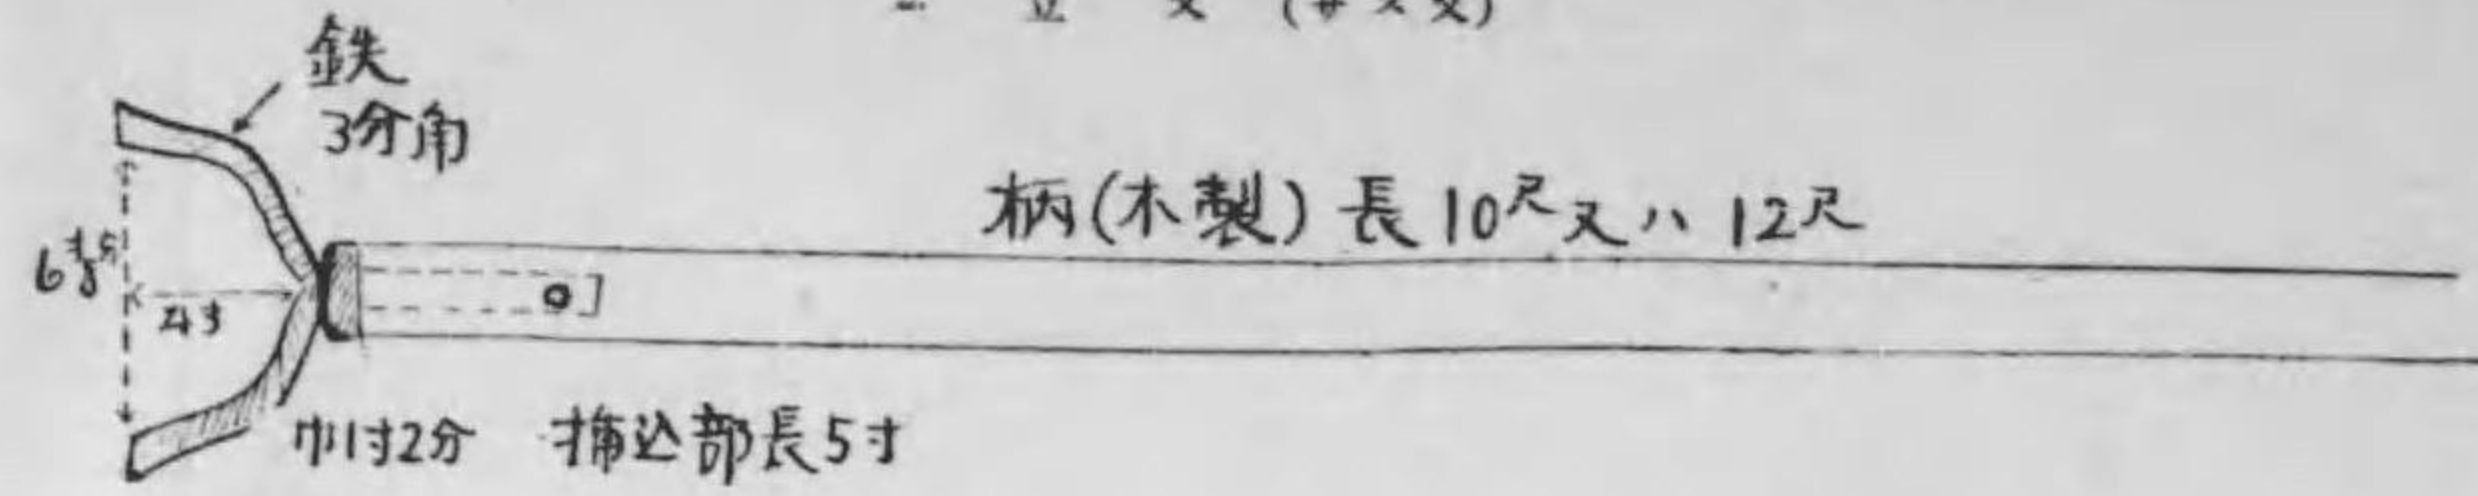 鉄
3分角
柄(木製)長10尺又ハ12尺
4寸
巾1寸2分 挿込部長5寸